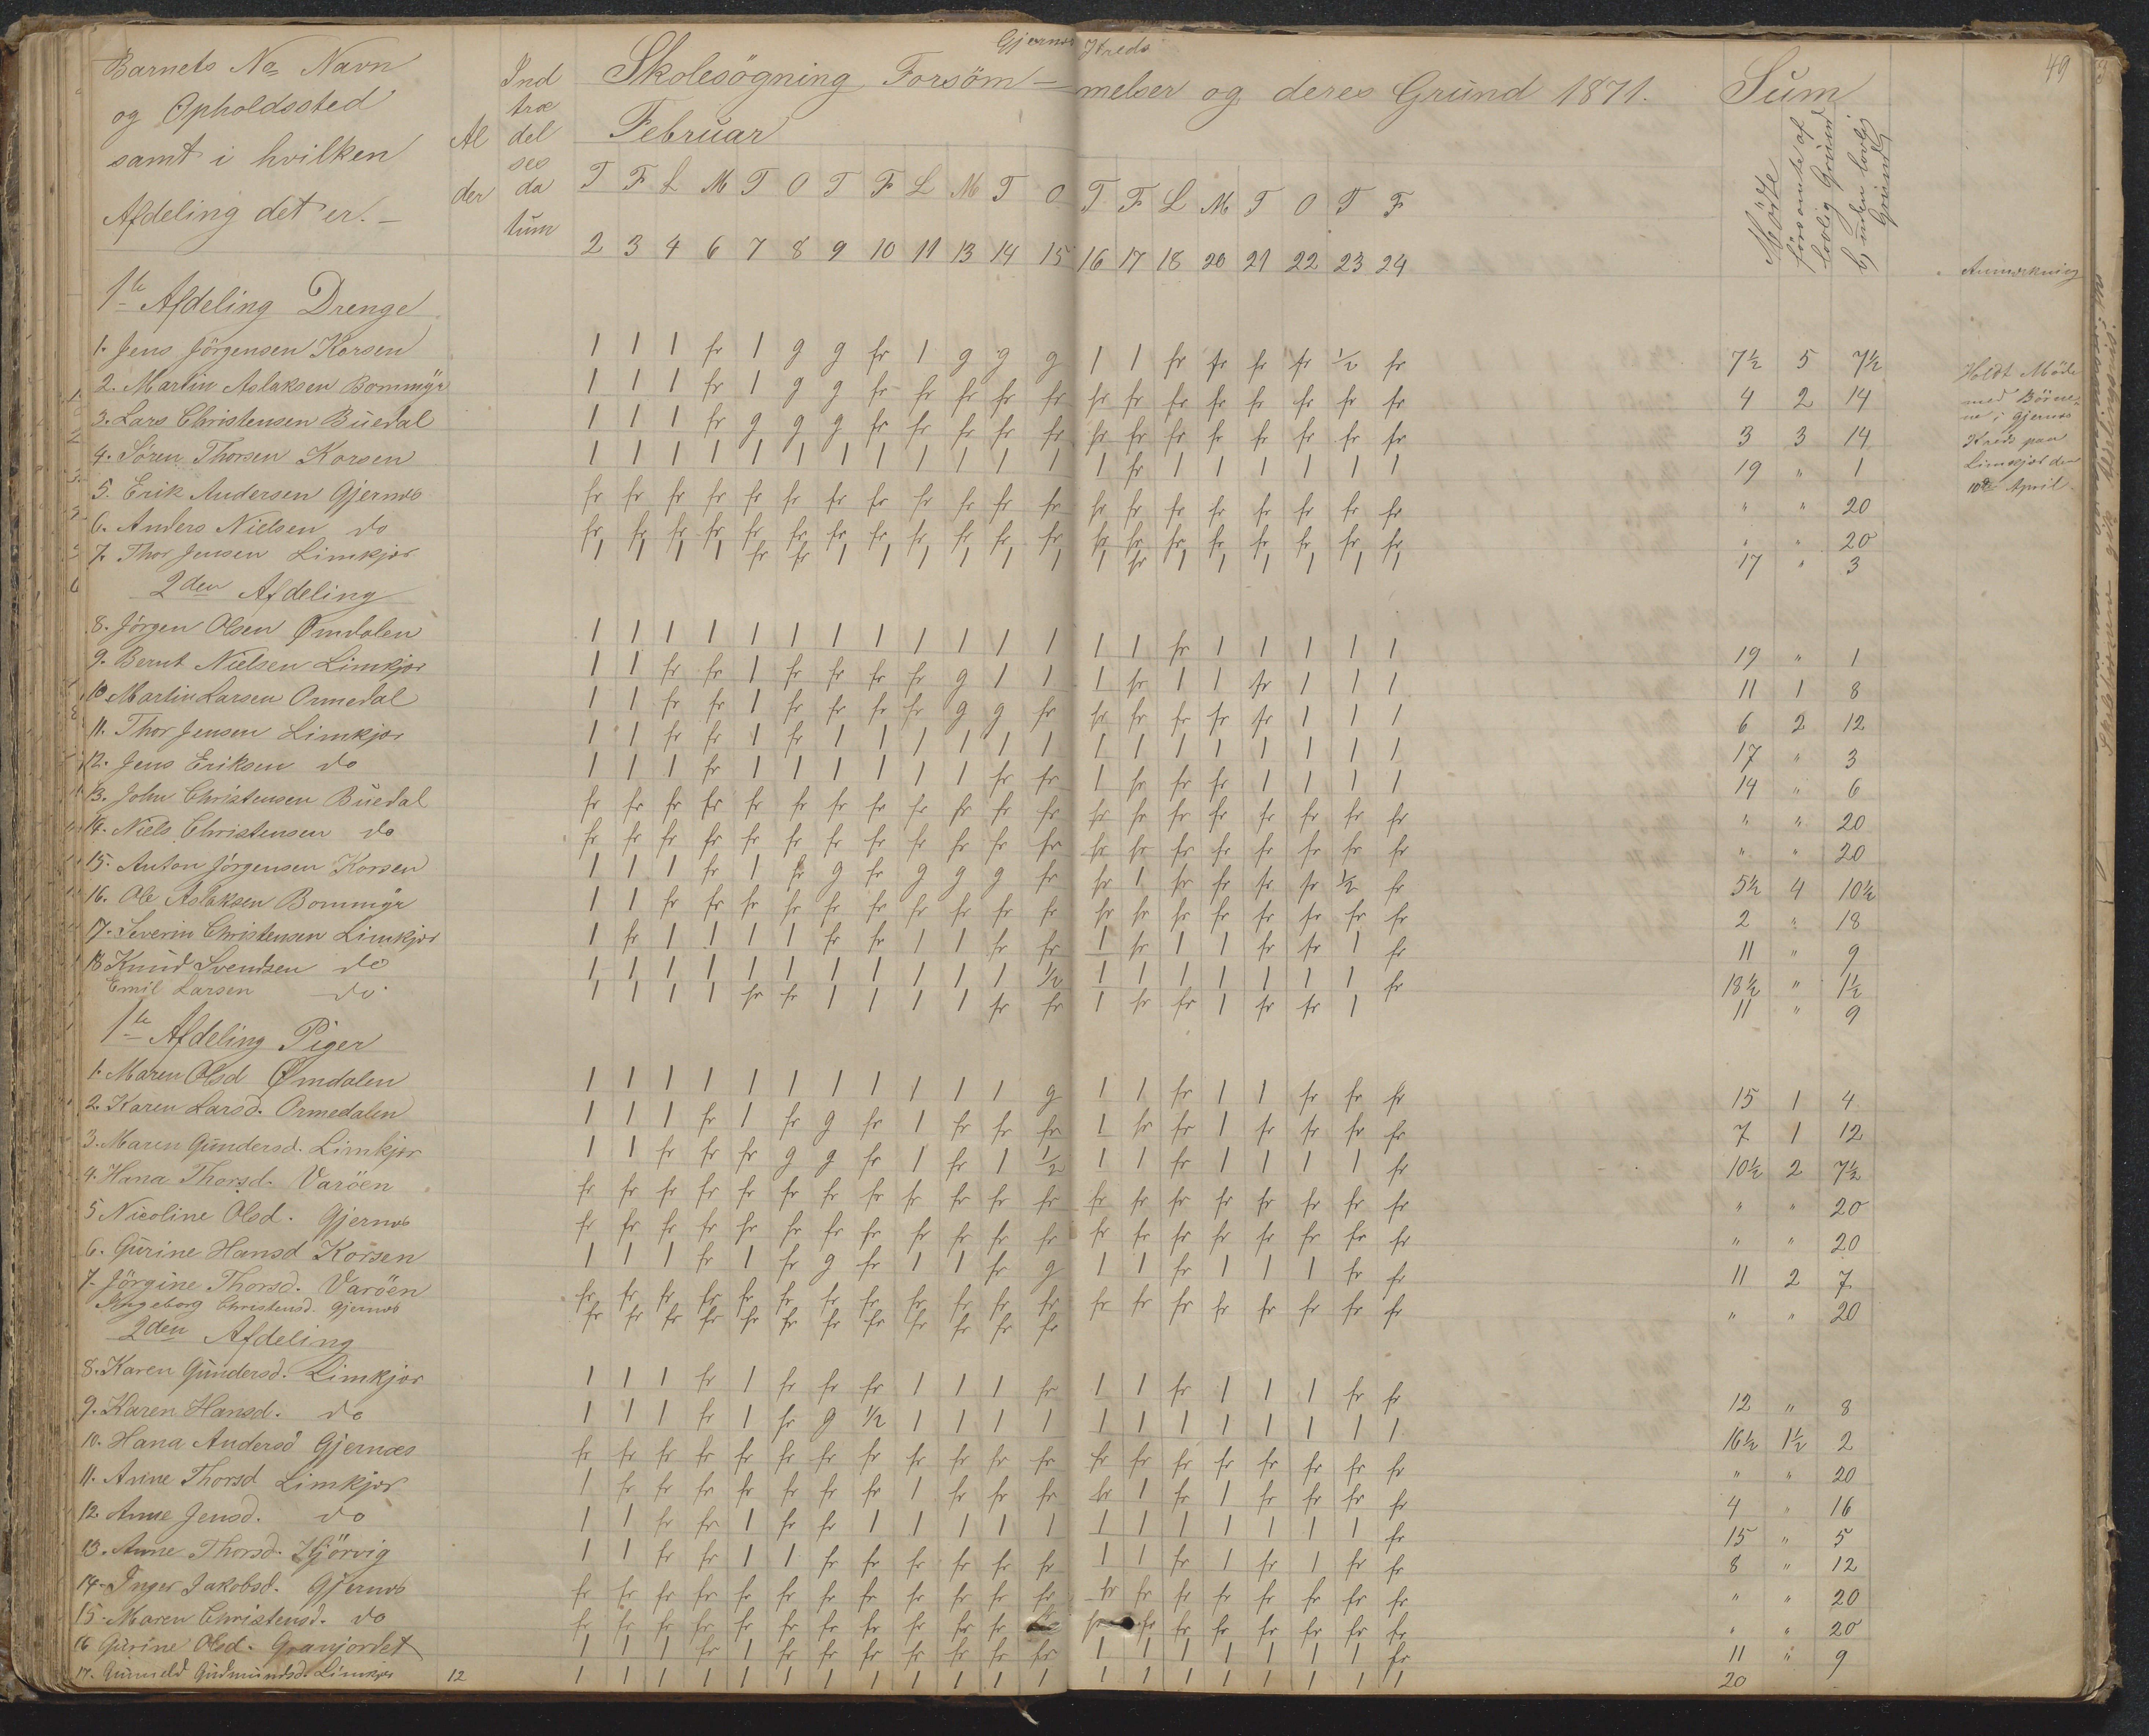 Gjernæs Kreds
49
Barnets No Navn og Opholdssted samt i hvilken Afdeling det er. –
Alder
Indtrædelsesdatum
Skolesögning Forsöm=melser og deres Grund 1871.
Februar
Sum
Mödte
forsömte af lovlig Grund
b, uden lovlig Grund
T F L M T O T F L M T O T F L M T O T F
2 3 4 6 7 8 9 10 11 13 14 15 16 17 18 20 21 22 23 24
Anmerkning
1ste Afdeling Drenge
1. Jens Jörgensen Korsen 1 1 1 fr 1 g g fr 1 g g g 1 1 fr fr fr fr ½ fr 7½ 5 7½
2. Martin Aslaksen Bommyr 1 1 1 fr 1 g g fr fr fr fr fr fr fr fr fr fr fr fr fr 4 2 14
3. Lars Christensen Buedal 1 1 1 fr g g g fr fr fr fr fr fr fr fr fr fr fr fr fr 3 3 14
4. Sören Thorsen Korsen 1 1 1 1 1 1 1 1 1 1 1 1 1 fr 1 1 1 1 1 1 19 " 1
5. Erik Andersen Gjernæs fr fr fr fr fr fr fr fr fr fr fr fr fr fr fr fr fr fr fr fr " " 20
6. Anders Nielsen do fr fr fr fr fr fr fr fr fr fr fr fr fr fr fr fr fr fr fr fr " " 20
7. Thor Jensen Limkjær 1 1 1 1 fr fr 1 1 1 1 1 1 1 fr 1 1 1 1 1 1 17 " 3
Holdt Möde
med Börne=
ne i Gjernæs
Kreds paa
Limkjær den
10de April.
2den Afdeling
8. Jörgen Olsen Ømdalen 1 1 1 1 1 1 1 1 1 1 1 1 1 1 fr 1 1 1 1 1 19 " 1
9. Bernt Nielsen Limkjær 1 1 fr fr 1 fr fr fr fr g 1 1 1 fr 1 1 fr 1 1 1 11 1 8
10. Martin Larsen Ormedal 1 1 fr fr 1 fr fr fr fr g g fr fr fr fr fr fr 1 1 1 6 2 12
11. Thor Jensen Limkjær 1 1 fr fr 1 fr 1 1 1 1 1 1 1 1 1 1 1 1 1 1 17 " 3
12. Jens Eriksen do 1 1 1 fr 1 1 1 1 1 1 fr fr 1 fr fr fr 1 1 1 1 14 " 6
13. John Christensen Buedal fr fr fr fr fr fr fr fr fr fr fr fr fr fr fr fr fr fr fr fr " " 20
14. Niels Christensen do fr fr fr fr fr fr fr fr fr fr fr fr fr fr fr fr fr fr fr fr " " 20
15. Anton Jörgensen Korsen 1 1 1 fr 1 fr g fr g g g fr fr 1 fr fr fr fr ½ fr 5½ 4 10½
16. Ole Aslaksen Bommyr 1 1 fr fr fr fr fr fr fr fr fr fr fr fr fr fr fr fr fr fr 2 " 18
17. Severin Christensen Limkjær 1 fr 1 1 1 1 fr fr 1 1 fr fr 1 fr 1 1 fr fr 1 fr 11 " 9
18 Knud Svendsen do 1 1 1 1 1 1 1 1 1 1 1 ½ 1 1 1 1 1 1 1 fr 18½ " 1½
Emil Larsen do 1 1 1 1 fr fr 1 1 1 1 fr fr 1 fr fr 1 fr fr 1 11 " 9
1ste Afdeling Piger
1. Maren Olsd Ømdalen 1 1 1 1 1 1 1 1 1 1 1 g 1 1 fr 1 1 fr fr fr 15 1 4
2. Karen Larsd. Ormedalen 1 1 1 fr 1 fr g fr 1 fr fr fr 1 fr fr 1 fr fr fr fr 7 1 12
3. Maren Gundersd. Limkjær 1 1 fr fr fr g g fr 1 fr 1 ½ 1 1 fr 1 1 1 1 fr 10½ 2 7½
4. Hana Thorsd. Varöen fr fr fr fr fr fr fr fr fr fr fr fr fr fr fr fr fr fr fr fr " " 20
5 Nicoline Olsd. Gjernæs fr fr fr fr fr fr fr fr fr fr fr fr fr fr fr fr fr fr fr fr " " 20
6. Gurine Hansd Korsen 1 1 1 fr 1 fr g fr 1 1 fr g 1 1 fr 1 1 1 fr fr 11 2 7
7. Jörgine Thorsd. Varöen fr fr fr fr fr fr fr fr fr fr fr fr fr fr fr fr fr fr fr fr " " 20
Ingeborg Christensd. Gjernæs fr fr fr fr fr fr fr fr fr fr fr fr
2den Afdeling
8. Karen Gundersd. Limkjær 1 1 1 fr 1 fr fr fr 1 1 1 fr 1 1 fr 1 1 1 fr fr 12 " 8
9. Karen Hansd. do 1 1 1 fr 1 fr g ½ 1 1 1 1 1 1 1 1 1 1 1 1 16½ 1½ 2
10. Hana Andersd Gjernæs fr fr fr fr fr fr fr fr fr fr fr fr fr fr fr fr fr fr fr fr " " 20
11. Anne Thorsd Limkjær 1 fr fr fr fr fr fr fr 1 fr fr fr fr 1 fr 1 fr fr fr fr 4 " 16
12. Anne Jensd. do 1 1 fr fr 1 fr fr 1 1 1 1 1 1 1 1 1 1 1 1 fr 15 " 5
13. Anne Thorsd. Kjörvig 1 1 fr fr 1 1 fr fr fr fr fr fr 1 1 fr 1 fr 1 fr fr 8 " 12
14. Inger Jakobsd. Gjernæs fr fr fr fr fr fr fr fr fr fr fr fr fr fr fr fr fr fr fr fr " " 20
15. Maren Christensd. do fr fr fr fr fr fr fr fr fr fr fr fr fr fr fr fr fr fr fr " " 20
16 Gurine Olsd. Granjordet 1 1 1 fr 1 fr fr fr fr fr fr fr 1 1 1 1 1 1 1 fr 11 " 9
17. Gunneld Gudmundsd. Limkjær 12 1 1 1 1 1 1 1 1 1 1 1 1 1 1 1 1 1 1 1 1 20